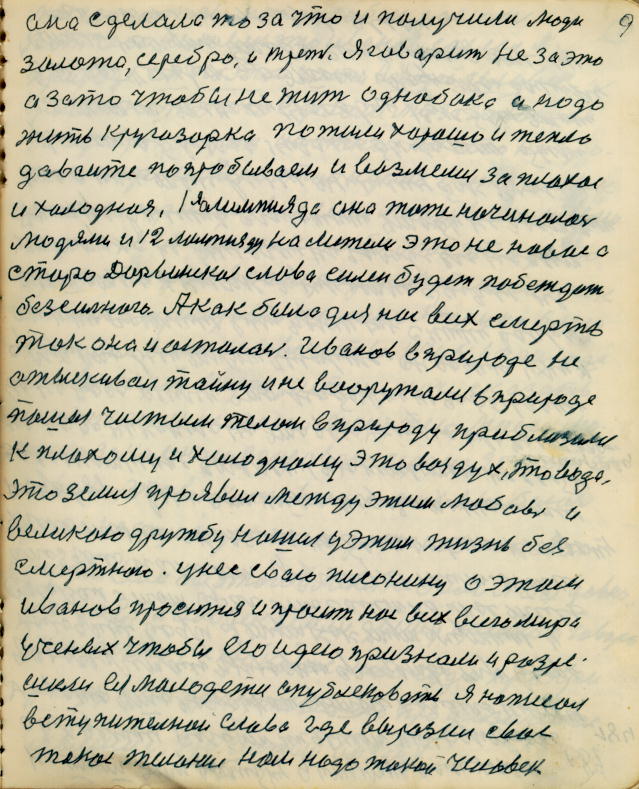 9
она сделала то за что и получили люди
золото, серебро, и трет. Я говарит не за это
а зато чтобы не жит однобоко а нодо
жить кругазорка пожили харашо и тепло
даваите попробываем и вазмеши за плохое
и холодная, 1 Ялимпияда она тоже начиналас
людями и 12 лимпияду на метели это не новое а
старо Дарвинскоя слова силен будет побеждат
безсилного. А как было для нас всих смерть
так она и осталас. Иванов в природе не
отыскивал тайну и не вооружали в природе
пошол чистым телом в природу приблизили
к плохому и холодному это воздух, это вода,
это земля проявил между этим любовь и
великою дружбу нашол у этим жизнь без
смертною. у нес сваю писонину о этом
Иванов проситця и просит нас всих всего мира
ученых чтобы его идею признали и разре
шили ея молодети опубликовать Я написал
вступителной слава где выразил свае
такое желание нам надо такой человек